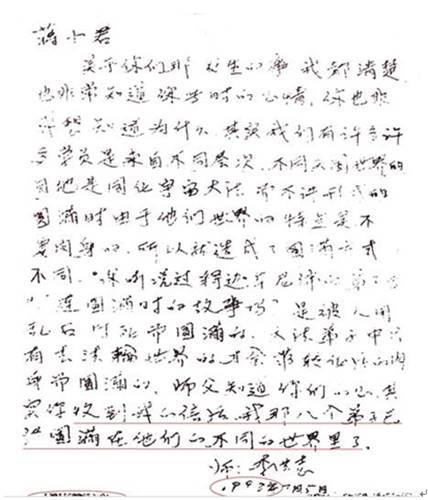 蒋小君
关于你们那发生的事 我都清楚
也非常知道你当时的心情，你也非
常想知道为什么 其实我们有许多许
多学员是来自不同层次、不同天国世界的
目地是同化宇宙大法 而不讲形式的
圆满时由于他们世界的特点是不
要肉身的，所以就造成了圆满方式
不同。你听说过
圆满时的故事吗 是被人用
乱石 圆满的。大法弟子中只
有去法轮世界的才会
身带圆满的。师父知道你们的心 其
实你收到我的信后 我那八个弟子已
圆满在他们的不同的世界里了。
师 李洪志